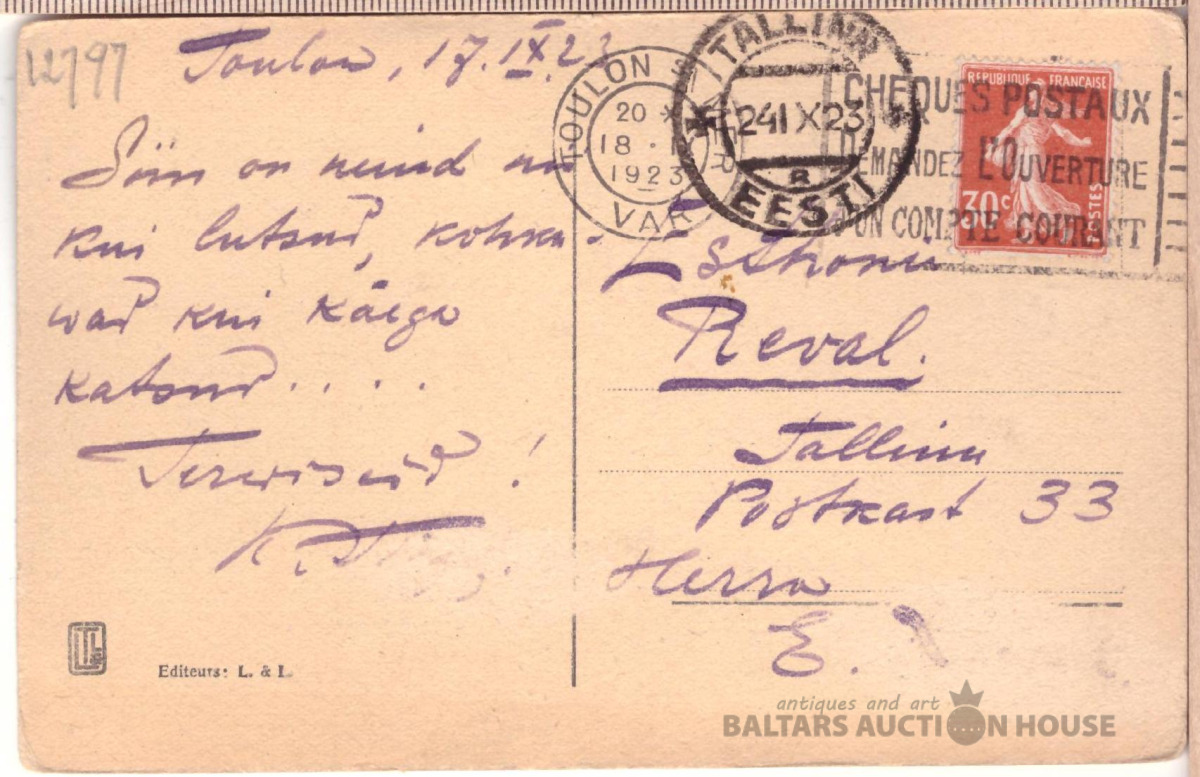 12797
Toulon, 17.IX.23
Siin on neiud
kui lutsud, kohku-
wad kui käega
katsud....
Terwiseid!
K.
Editeurs: L. & L.
TOULON
20 *
18 .
1923
VAR
TALLINN
24 IX 23
B
EESTI
CHEQUES POSTAUX
DEMANDEZ L'OUVERTURE
D'UN COMPTE COURANT
REPUBLIQUE FRANCAISE
30c
POSTES
Esthonie
Reval.
Tallinn
Postkast 33
Herra
E.
antiques and art
BALTARS AUCTION HOUSE